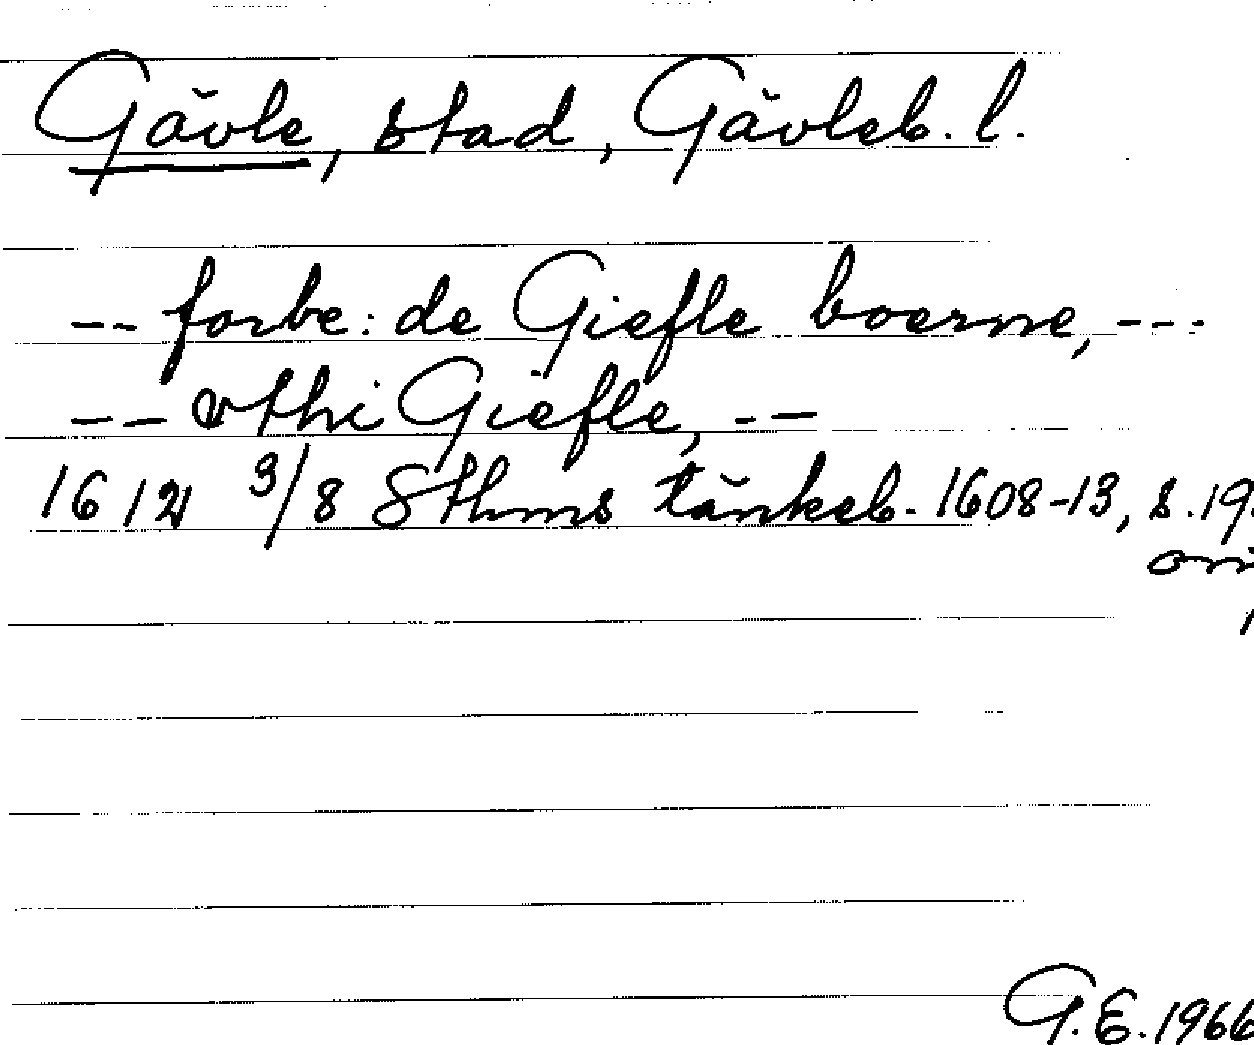 Gävle, stad, Gävleb. l.
-- forbe: de Giefle boerne, ---
-- vthi Giefle, --
1612 3/8 Sthms tänkeb. 1608-13, s. 19.
G.E. 1966